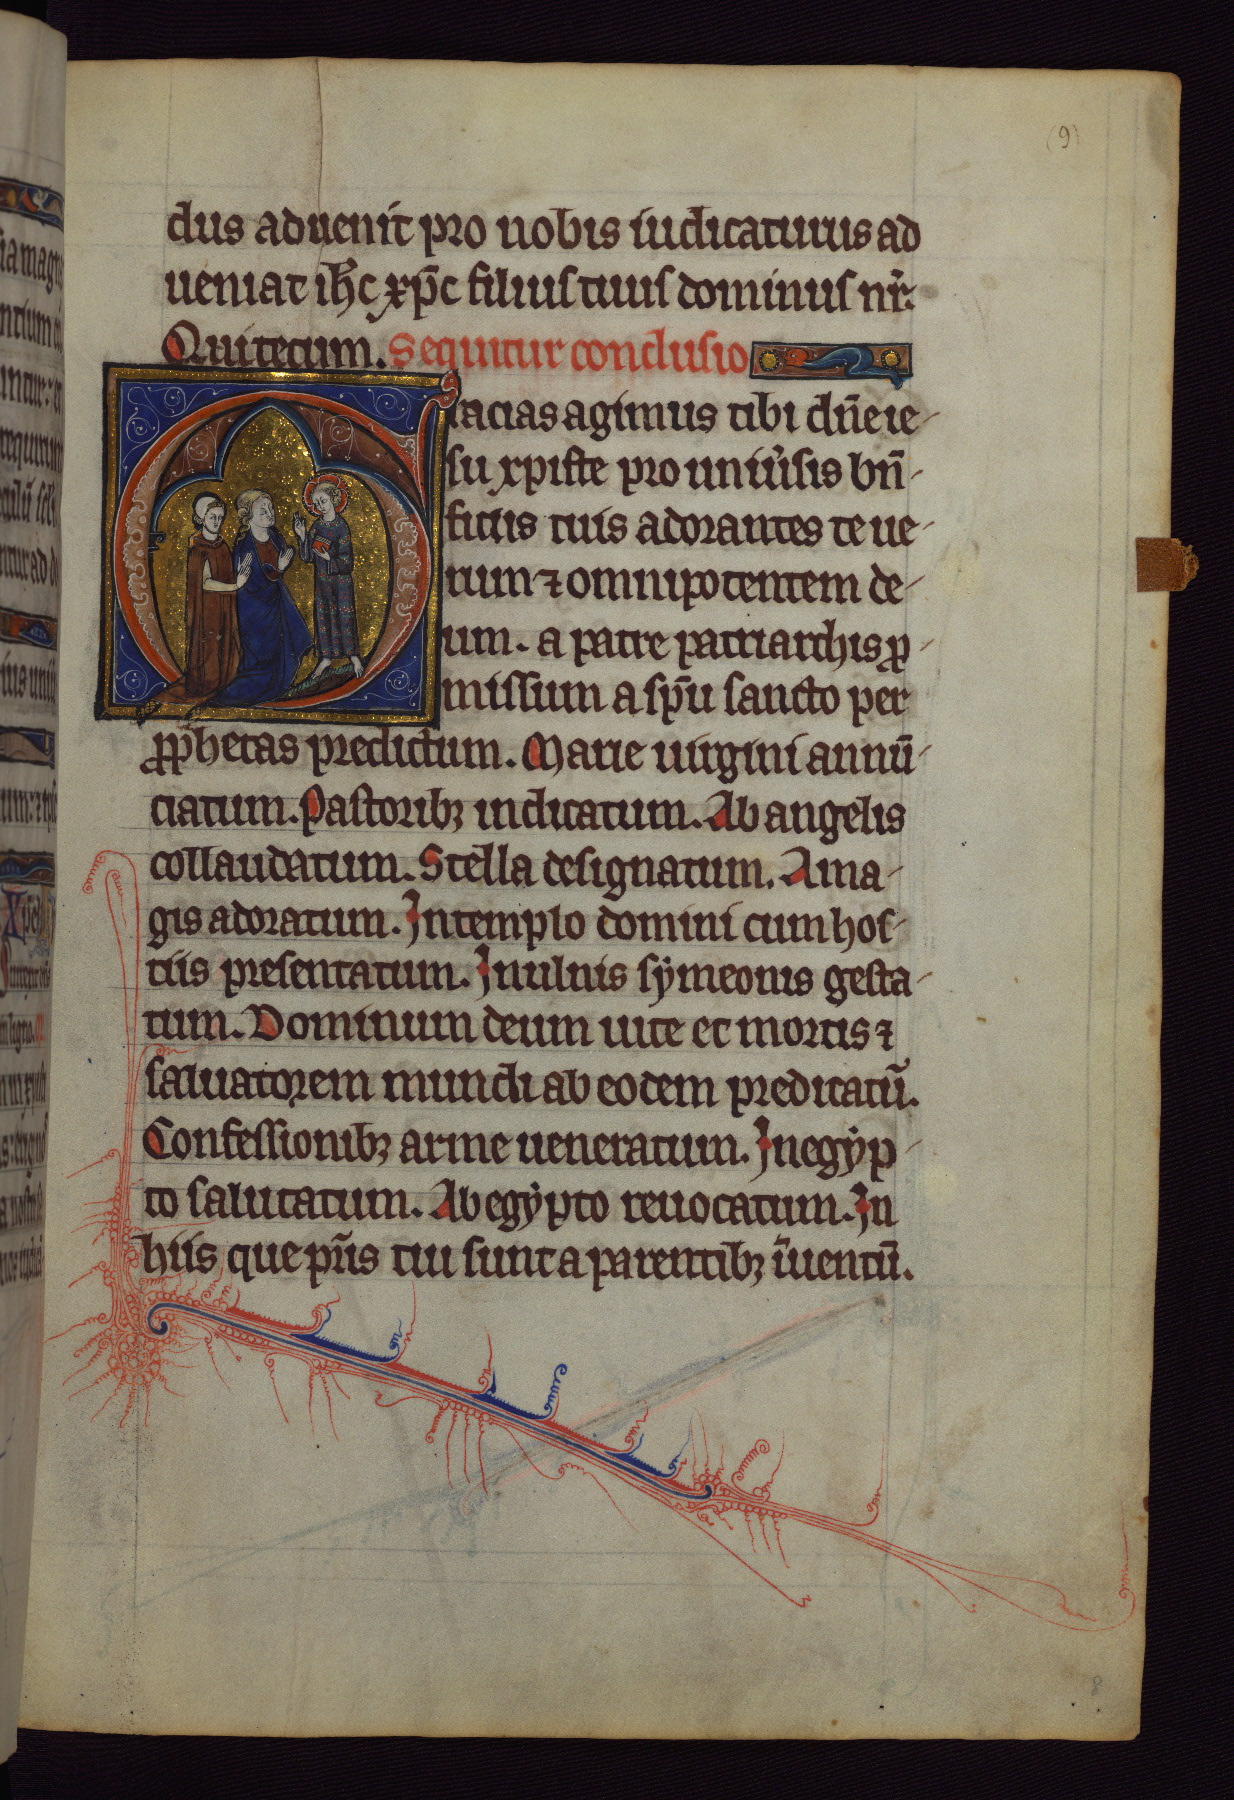 (9)
dus aduenit pro nobis iudicaturus ad
ueniat ih̅c xp̅c filius tuus dominus nr̅.
Qui tecum. Sequitur conclusio
racias agimus tibi dn̅e ie-
su xpiste pro uniu̾sis bn̅-
ficiis tuis adorantes te ue-
rum ⁊ omnipotentem de-
um. a patre patriarchis ꝓ-
missum a sp̅u sancto per
ꝓphetas predictum. Marie uirgini annu̅-
ciatum. Pastoribꝫ indicatum. Ab angelis
collaudatum. Stella designatum. A ma-
gis adoratum. In templo domini cum hos-
tiis presentatum. In ulnis sẏmeonis gesta-
tum. Dominum deum uite et mortis ⁊
saluatorem mundi ab eodem predicatu̅.
Confessionibꝫ a me ueneratum. In egẏp-
to salutatum. Ab egẏpto reuocatum. In
hiis que pr̅is tui sunt a parentibꝫ i̅uentu̅.
8